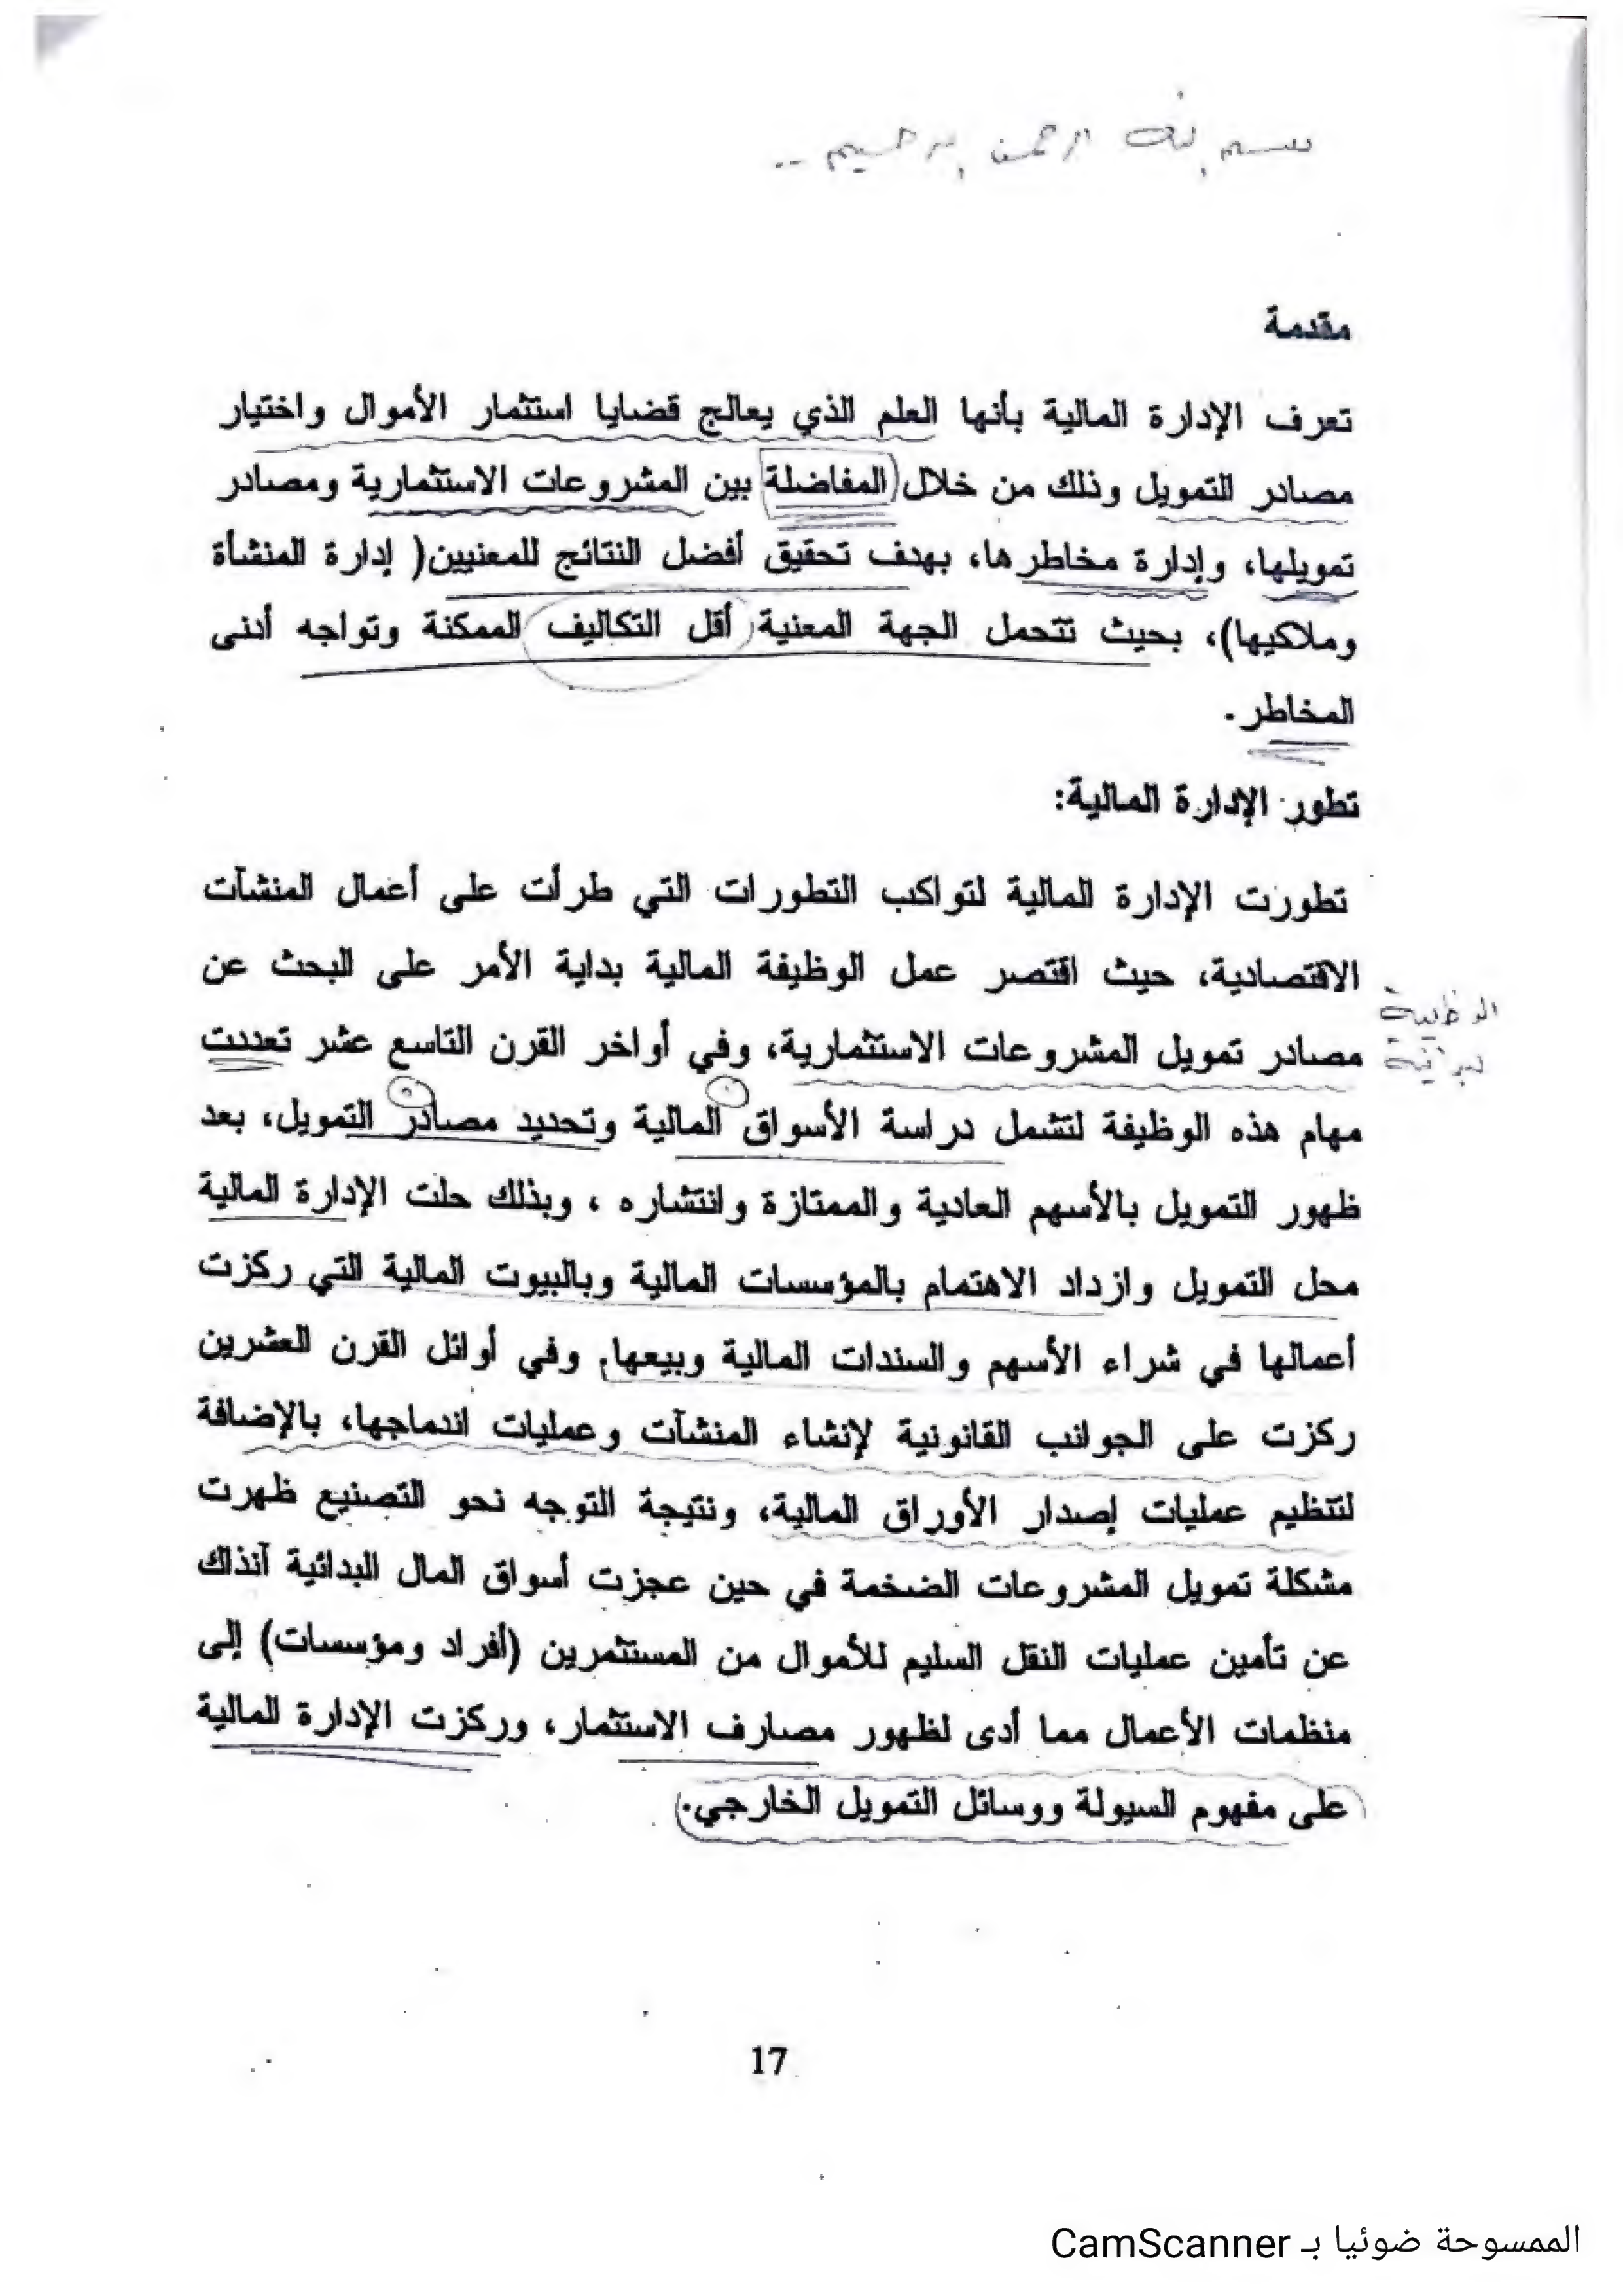 بسم الله الرحمن الرحيم ..
مقدمة
تعرف الإدارة المالية بأنها العلم الذي يعالج قضايا استثمار الأموال واختيار
مصادر التمويل وذلك من خلال (المفاضلة بين المشروعات الاستثمارية ومصادر
تمويلها، وإدارة مخاطرها، بهدف تحقيق أفضل النتائج للمعنيين( إدارة المنشأة
وملاكيها)، بحيث تتحمل الجهة المعنية أقل التكاليف الممكنة وتواجه أدنى
المخاطر.
تطور الإدارة المالية:
تطورت الإدارة المالية لتواكب التطورات التي طرأت على أعمال المنشآت
الاقتصادية، حيث اقتصر عمل الوظيفة المالية بداية الأمر على البحث عن
الوظيفة
مصادر تمويل المشروعات الاستثمارية، وفي أواخر القرن التاسع عشر تعددت
مهام هذه الوظيفة لتشمل دراسة الأسواق المالية وتحديد مصادر التمويل، بعد
ظهور التمويل بالأسهم العادية والممتازة وانتشاره ، وبذلك حلت الإدارة المالية
محل التمويل وازداد الاهتمام بالمؤسسات المالية وبالبيوت المالية التي ركزت
أعمالها في شراء الأسهم والسندات المالية وبيعها، وفي أوائل القرن العشرين
ركزت على الجوانب القانونية لإنشاء المنشآت وعمليات اندماجها، بالإضافة
لتنظيم عمليات إصدار الأوراق المالية، ونتيجة التوجه نحو التصنيع ظهرت
مشكلة تمويل المشروعات الضخمة في حين عجزت أسواق المال البدائية آنذاك
عن تأمين عمليات النقل السليم للأموال من المستثمرين (أفراد ومؤسسات) إلى
منظمات الأعمال مما أدى لظهور مصارف الاستثمار، وركزت الإدارة المالية
على مفهوم السيولة ووسائل التمويل الخارجي.
17
الممسوحة ضوئيا بـ CamScanner